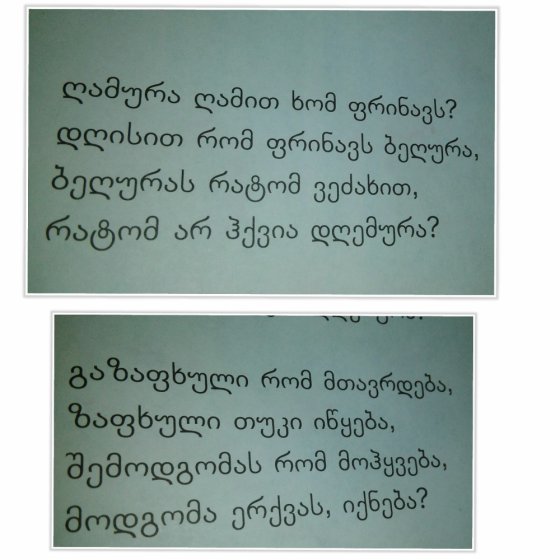 ღამურა ღამით ხომ ფრინავს?
დღისით რომ ფრინავს ბეღურა,
ბეღურას რატომ ვეძახით,
რატომ არ ჰქვია დღემურა?
გაზაფხული რომ მთავრდება,
ზაფხული თუკი იწყება,
შემოდგომას რომ მოჰყვება,
მოდგომა ერქვას, იქნება?